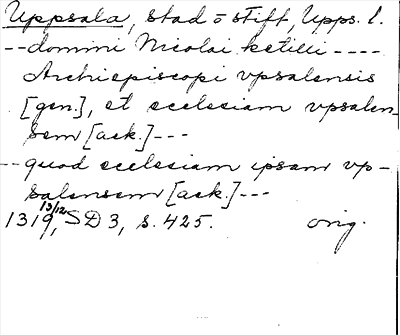 Uppsala, stad o stift, Upps. l.
--domini Nicolai ketilli----
Archiepiscopi vpsalensis
[gen.], et ecclesiam vpsalen-
sem [ack.]---
--quod ecclesiam ipsam vp-
salensem [ack.]---
13/12
1319, SD 3, s. 425. orig.